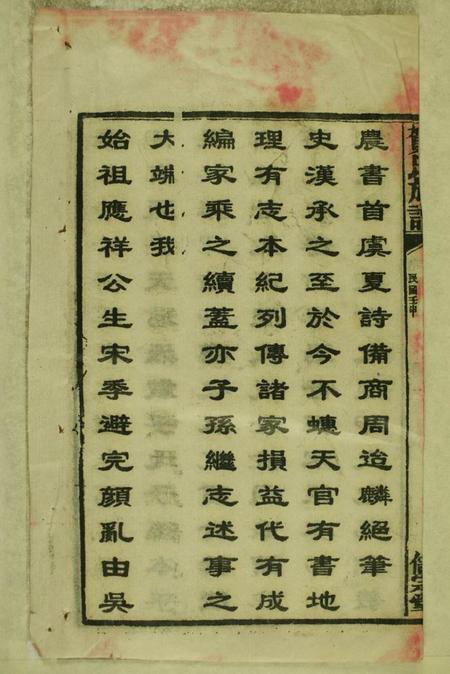 農書首虞夏詩備商周迨麟絕筆
史漢承之至於今不螝天官有書地
理有志本紀列傳諸家損益代有成
編家乘之續蓋亦子孫繼志述事之
大端也我
始祖應祥公生宋季避完顏亂由吳